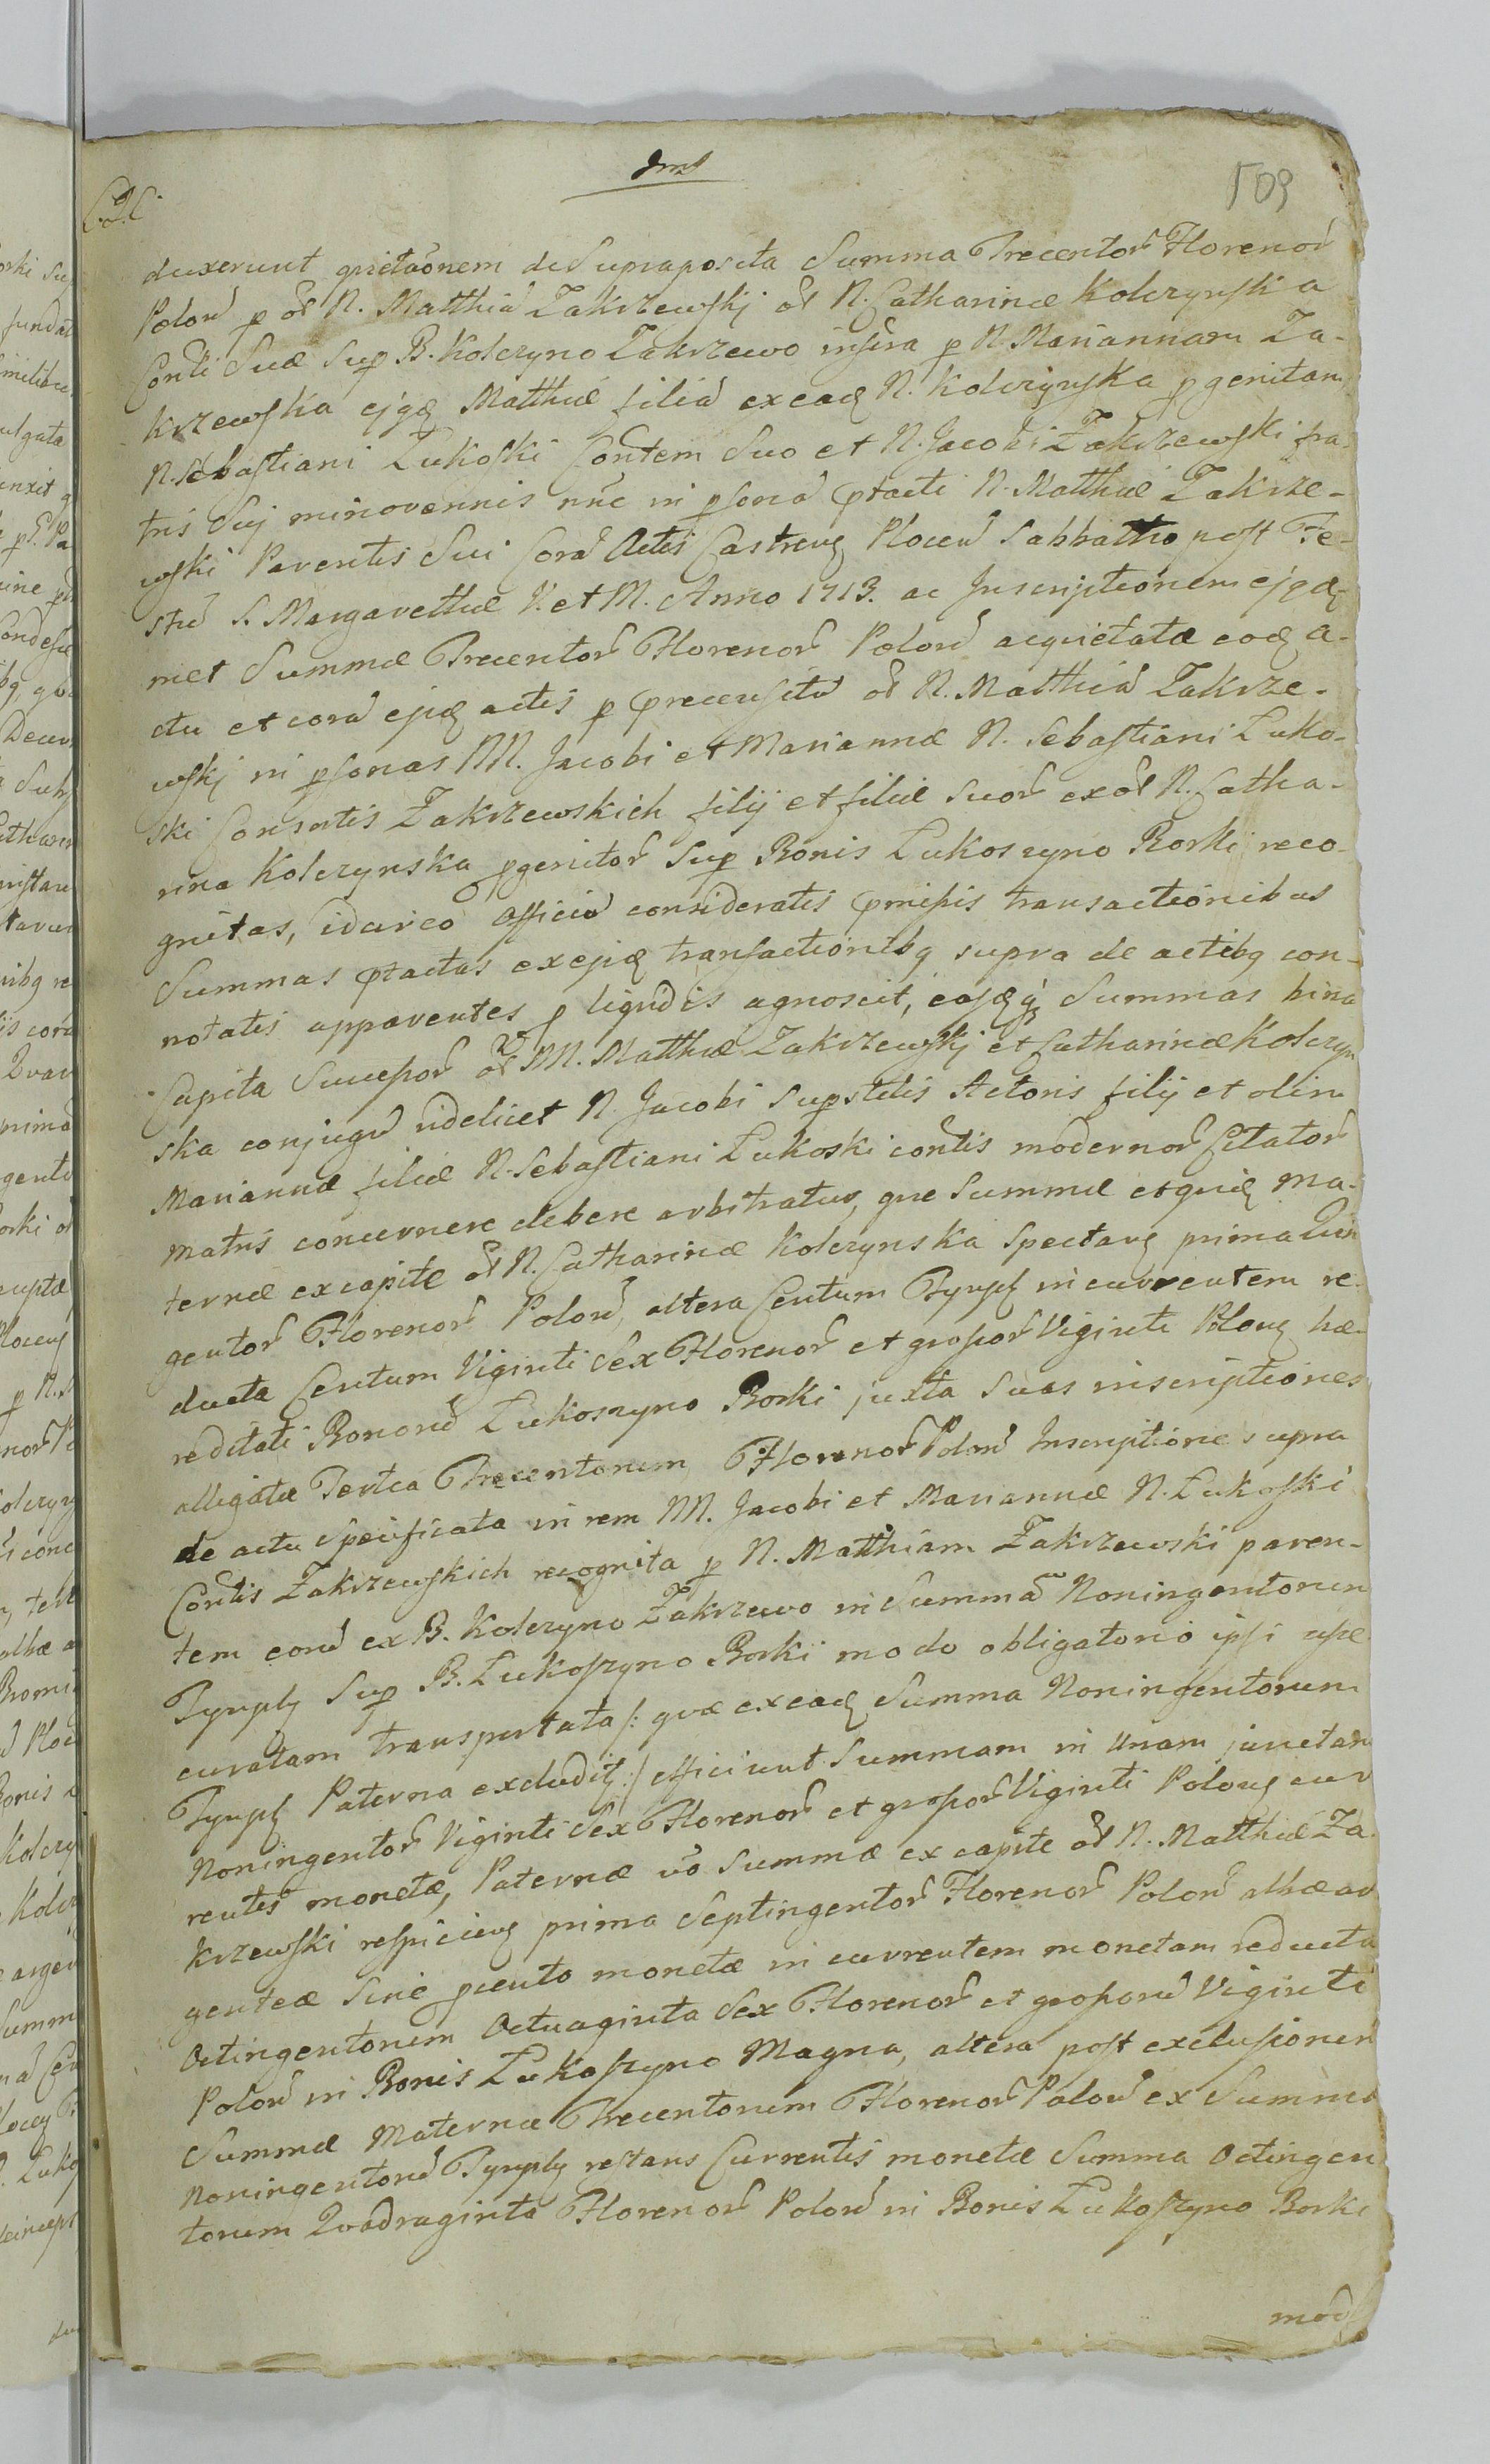 509
duxerunt quietaõnem de Supraposita Summa Trecentor Florenor
Polon p ol N. Matthia Zakrzewskj ol N. Catharinæ Kolczynska
Conti Suæ Sup B. Kolczyno Zakrzewo inscra p N. Mariannam Za-
krzewska ejqd Matthiæ filia ex eadq N. Kolczynska pgenitam
N. Sebastiani Lukoski Contem Suo et N. Jacobi Zakrzewski fra-
tris Suj minorennis nunc in psona ptacti N. Matthiæ Zakrze-
wski Parentis Sui Cora Actis Castreng Plocen Sabbatho post Fe-
stu S. Margarethæ V. et M. Anno 1713. ac Inscriptionem ejqdq
met Summæ Trecentor Florenor Polon acquietatæ eodq a-
ctu et cora ejsdq actis p precensitu ol N. Matthia Zakrze-
wskj in psonas NN. Jacobi et Mariannæ N. Sebastiani Luko-
ski Consortis Zakrzewskich filij et filiæ Suor ex ol N. Catha-
rina Kolczynska pgenitor Sup Bonis Lukoszyno Borki reco-
gnitas, idcirco Officiu consideratis pmissis transactionibus
Summas ptactas ex ejsdq transactionibq supra de actibq con-
notatis apparentes p liquidis agnoscit, easdqq Summas bina
Capita Succesor ol NN. Matthiæ Zakrzewskj et Catharinæ Kolczyn
ska conjugu videlicet N. Jacobi Supstitis Actoris filij et olim
Mariannæ filiæ N. Sebastiani Lukoski contis modernor Citator
matris concernere debere arbitratur, que Summæ et quidq ma-
ternæ ex capite ol N. Catharinæ Kolczynska Spectang prima Quin
gentor Florenor Polon, altera Centum Tynph in currentem re-
ducta Centum Viginti Sex Florenor et grossor Viginti Polong hæ-
reditati Bonoru Lukoszyno Borki juxta Suas inscriptiones
alligatæ Tertia Trecentorum Florenor Polon Inscriptione supra
de actu specificata in rem NN. Jacobi et Mariannæ N. Lukoski
Contis Zakrzewskich recognita p N. Matthiam Zakrzewski paren-
tem eoru ex B. Kolczyno Zakrzewo in Summa Noningentorum
Tynph Sup B. Lukoszyno Borki modo obligatorio ipsi asse-
curatam transportata /: quæ ex eadq Summa Noningentorum
Tynph Paterna excluditq :/ efficiunt Summam in unam junctam
Noningentor Viginti Sex Florenor et grossor Viginti Polong cur
rentis monetæ, Paternæ vo Summæ ex capite ol N. Matthiæ Za
krzewski respicieng prima Septingentor Florenor Polon albæ ar
genteæ Sine pcento monetæ in currentem monetam reducta
Octingentorum Octuaginta Sex Florenor et grossoru Viginti
Polon in Bonis Lukoszyno Magna, altera post exclusionem
Summæ Maternæ Trecentorum Florenor Polon ex Summa
Noningentoru Tynph restans Currentis monetæ Summa Octingen
torum Quadraginta Florenor Polon in Bonis Lukoszyno Borki